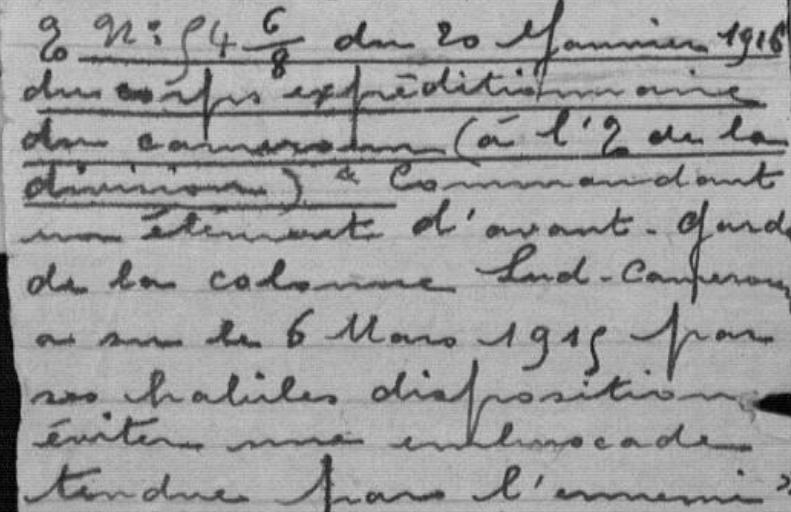 O N° 54 6/8 du 20 Janvier 1916
du corps expéditionnaire
du cameroun (à l'O de la
division) " Commandant
un élément d'avant-gard
de la colonne Sud-Cameroun
a su le 6 Mars 1915 par
ses habiles disposition
éviter une embuscade
tendue par l'ennemi "